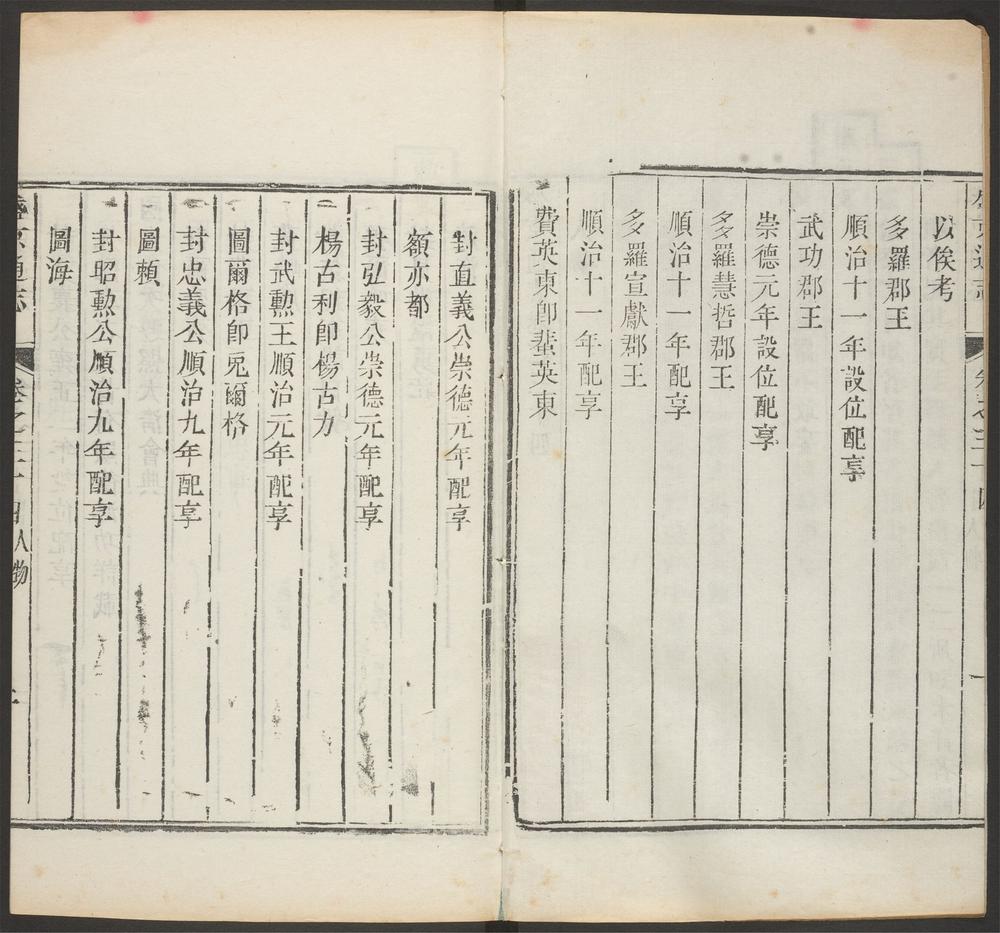 以俟考
多羅郡王
順治十一年設位配享
武功郡王
崇德元年設位配享
多羅慧哲郡王
順治十一年配享
多羅宣獻郡王
順治十一年配享
費英東卽蜚英東
封直義公崇德元年配享
額亦都
封弘毅公崇德元年配享
楊古利卽楊古力
封武勲王順治元年配享
圖爾格卽兎爾格
封忠義公順治九年配享
圖賴
封昭勲公順治九年配享
圖海
盛京通志 卷之三十四人物